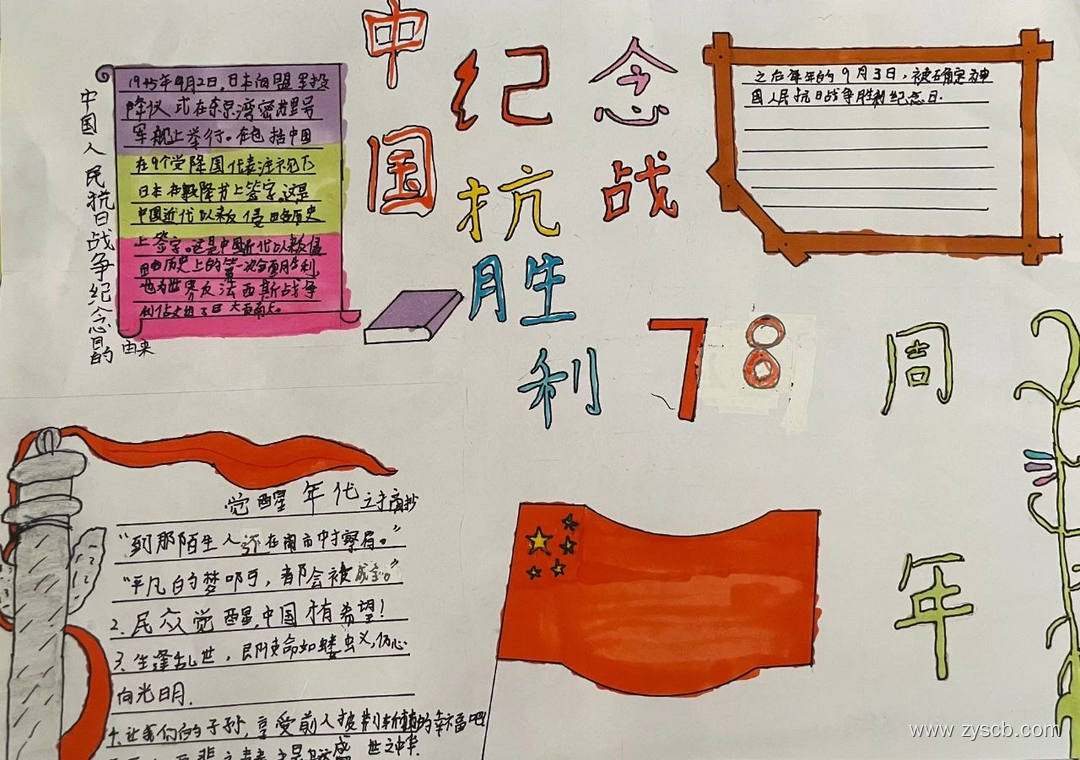 中国
纪念
抗战
胜利
78周年
中国人民抗日战争纪念日的
由来
1945年9月2日,日本向盟军投
降仪式在东京湾密苏里号
军舰上举行。在包括中国
在9个受降国代表注视下
日本在投降书上签字,这是
中国近代以来反侵略历史
上签字。这是中国近代以来反侵
略历史上的第一次全面胜利
也为世界反法西斯战争
之后每年的9月3日,被确定为中
国人民抗日战争胜利纪念日.
觉醒年代之手商抄
“到那陌生人 在闹市中
“平凡的梦 ,都会被
2.民众觉醒,中国才有希望!
3.生逢乱世,即使命如蝼蚁,仍心
向光明.
4.让我们的子孙,享受前人披荆斩棘的幸福吧
盛世之中华.
www.zyscb.com